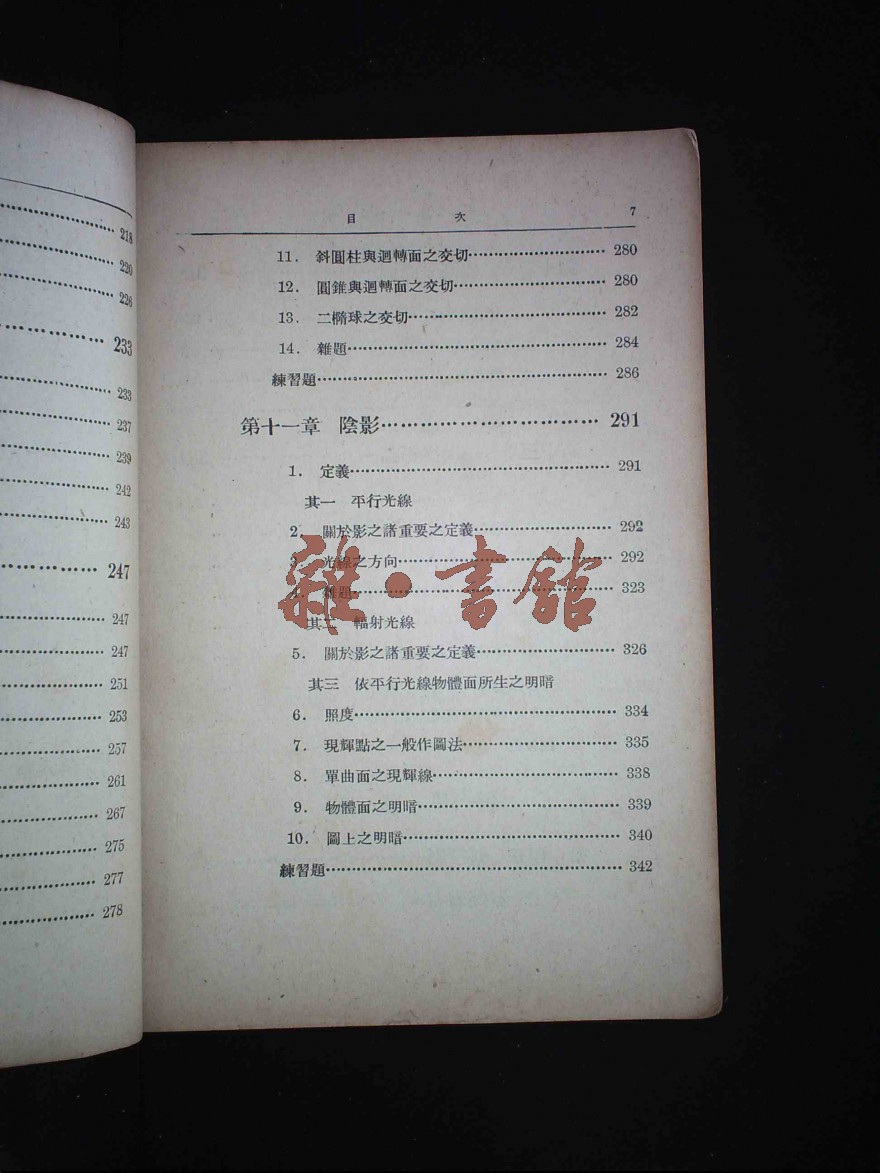 218
220
226
233
233
237
239
242
243
247
247
247
251
253
257
261
267
275
277
278
目 次 7
11. 斜圓柱與迴轉面之交切 280
12. 圓錐與迴轉面之交切 280
13. 二橢球之交切 282
14. 雜題 284
練習題 286
第十一章 陰影 291
1. 定義 291
其一 平行光線
2. 關於影之諸重要之定義 292
3. 光線之方向 292
4. 雜題 323
其二 輻射光線
5. 關於影之諸重要之定義 326
其三 依平行光線物體面所生之明暗
6. 照度 334
7. 現輝點之一般作圖法 335
8. 單曲面之現輝線 338
9. 物體面之明暗 339
10. 圖上之明暗 340
練習題 342
雜·書館